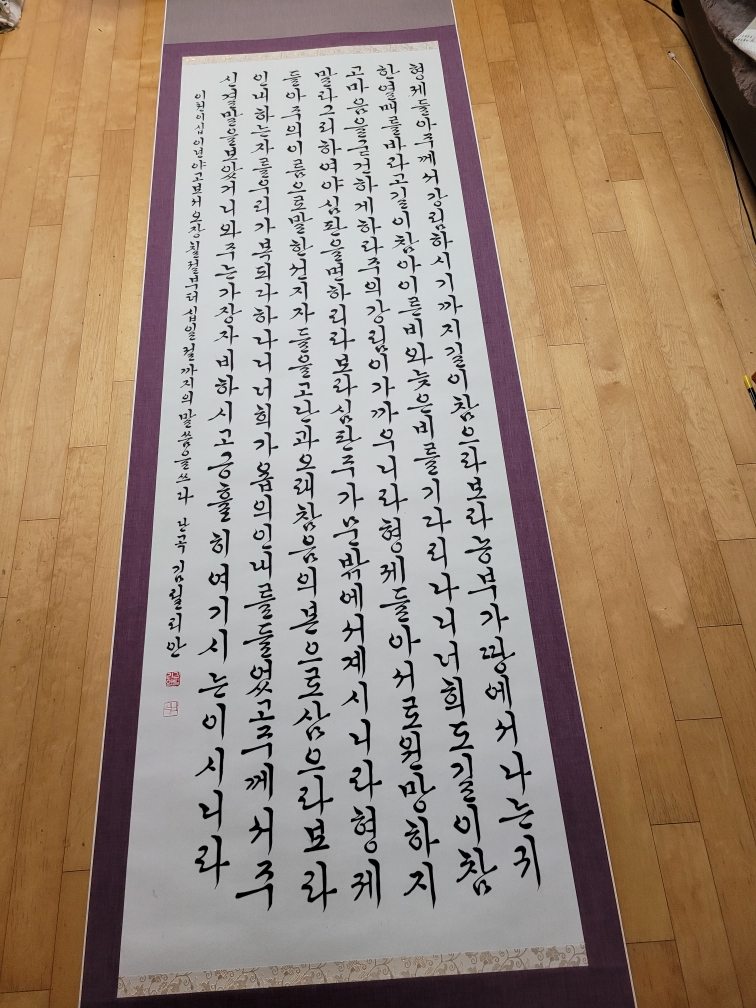 형제들아주께서강림하시기까지길이참으라보라농부가땅에서나는귀
한열매를바라고길이참아이른비와늦은비를기다리나니너희도길이참
고마음을굳건하게하라주의강림이가까우니라형제들아서로원망하지
말라그리하여야심판을면하리라보라심판주가문밖에서계시니라형제
들아주의이름으로말한선지자들을고난과오래참음의본으로삼으라보라
인내하는자를우리가복되다하나니너희가욥의인내를들었고주께서주
신결말을보았거니와주는가장자비하시고긍휼히여기시는이시니라
이천이십이년야고보서오장칠절부터십일절까지의말씀을쓰다 난곡 김릴리안